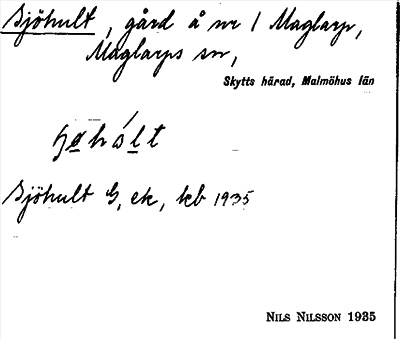 Sjöhult, gård å nr 1 Maglarp,
Maglarps sn,
Skytts härad, Malmöhus län
Sjöhult G, ek, kb 1935
NILS NILSSON 1935